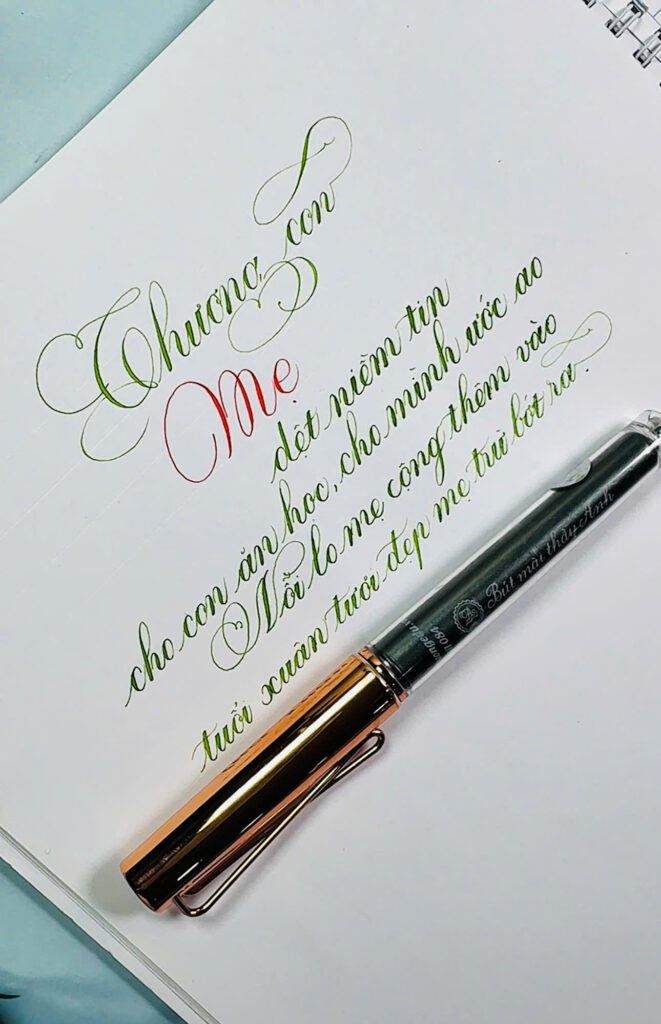 Thương con
Mẹ
dệt niềm tin
cho con ăn học, cho mình ước ao
Nỗi lo mẹ cộng thêm vào
tuổi xuân tươi đẹp mẹ trừ bớt ra.
Bút mài thầy Ánh
084